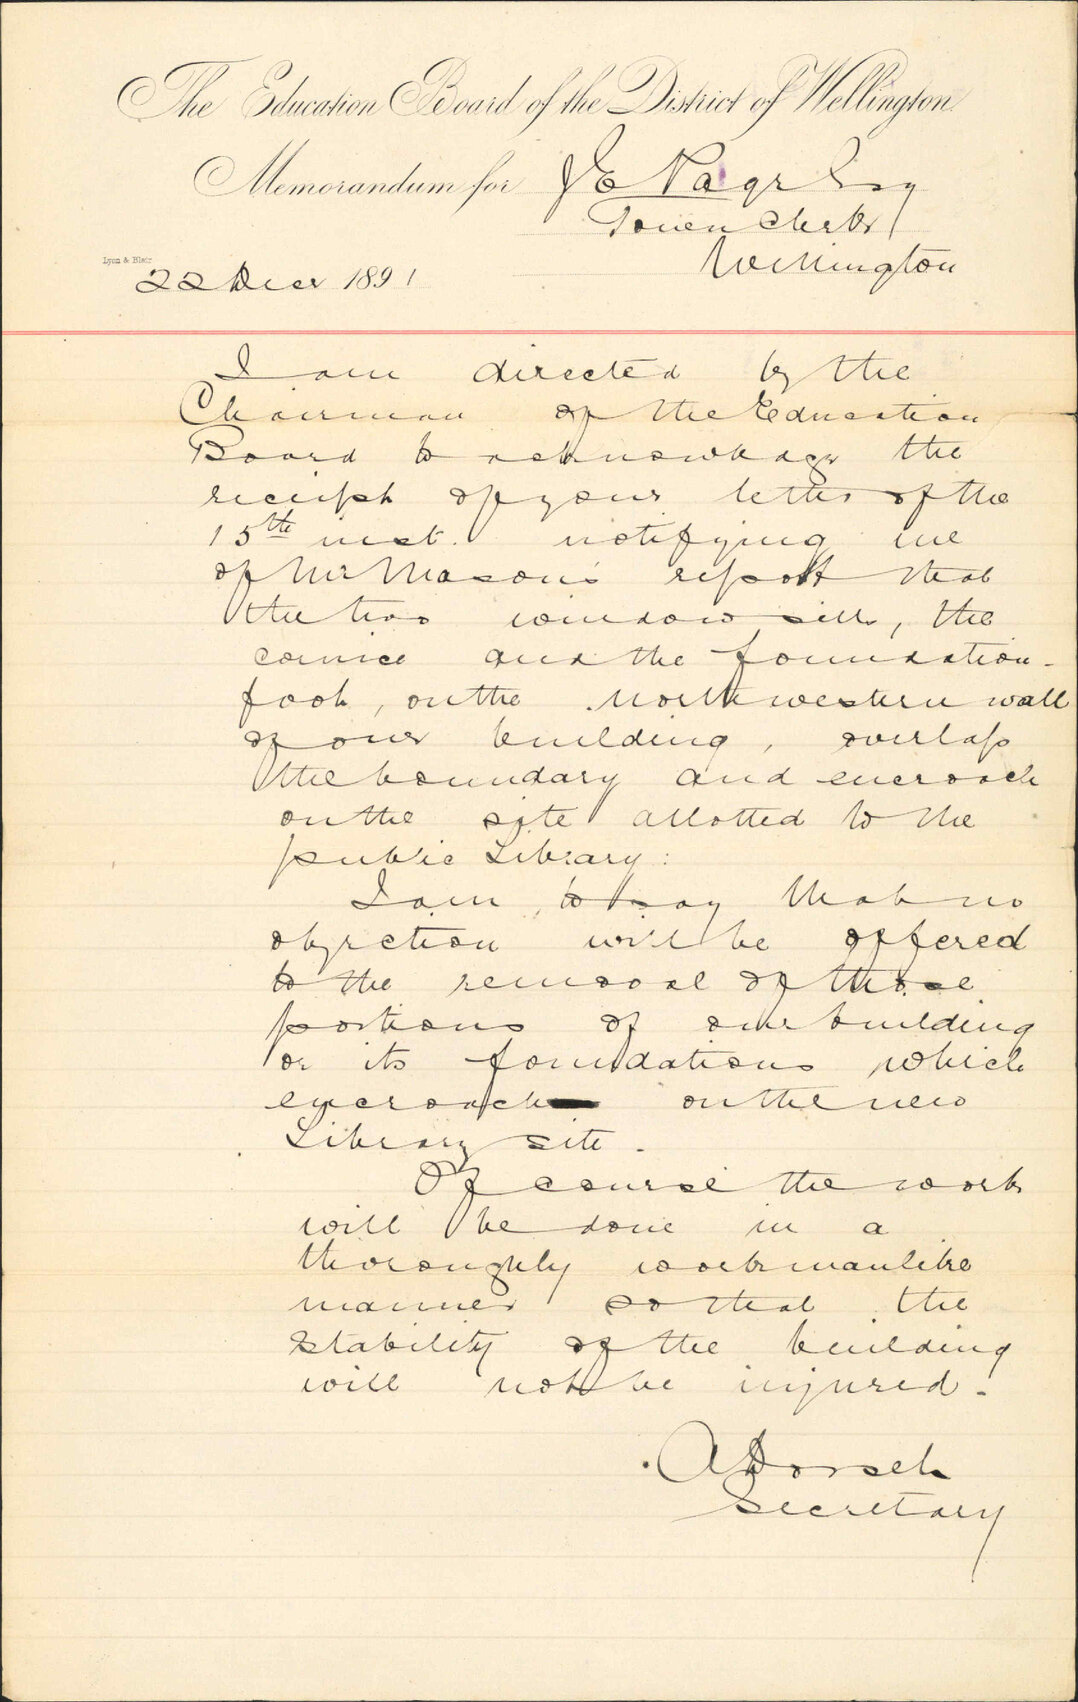 The Education Board of the District of Wellington
Memorandum for J E Page Esq
Town Clerk
Lyon & Blair
Wellington
22 Decr 1891
I am directed by the
Chairman of the Education
Board to acknowledge the
receipt of your letter of the
15th inst. notifying me
of Mr Mason's report that
the two window sills, the
cornice and the foundation-
foot, on the north western wall
of our building, overlap
the boundary and encroach
on the site allotted to the
public Library:
I am to say that no
objection will be offered
to the removal of those
portions of our building
or its foundations which
encroach on the new
Library site.
Of course the work
will be done in a
thoroughly workmanlike
manner so that the
stability of the building
will not be injured.
A Dorset
Secretary